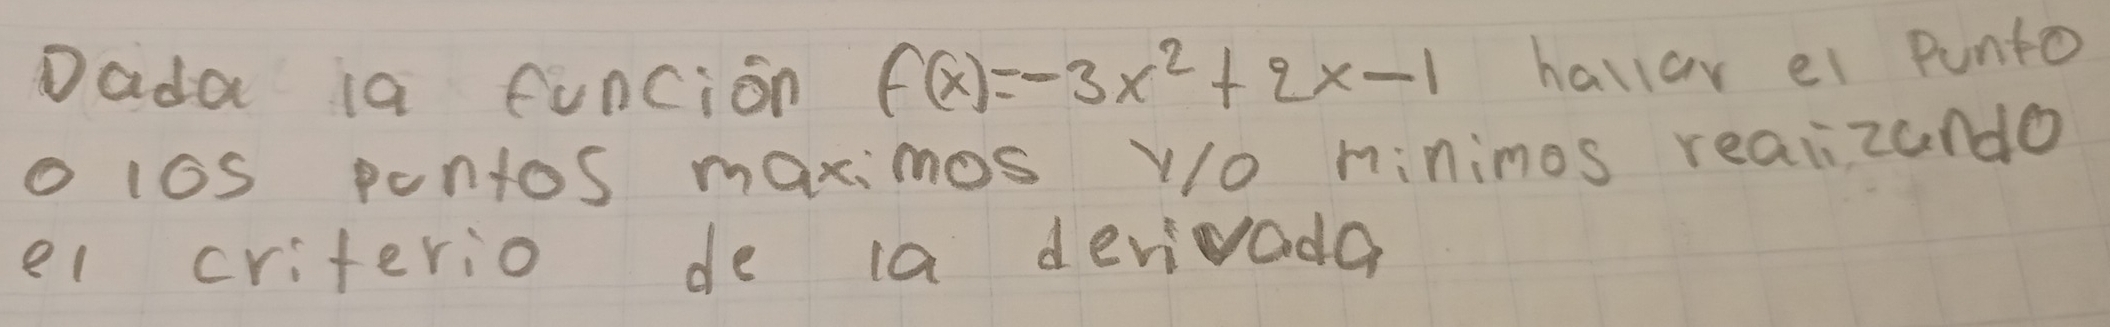 Dada la función f(x)=-3x²+2x-1 hallar el Punto
o los puntos maximos y/o minimos realizando
el criterio de la derivada